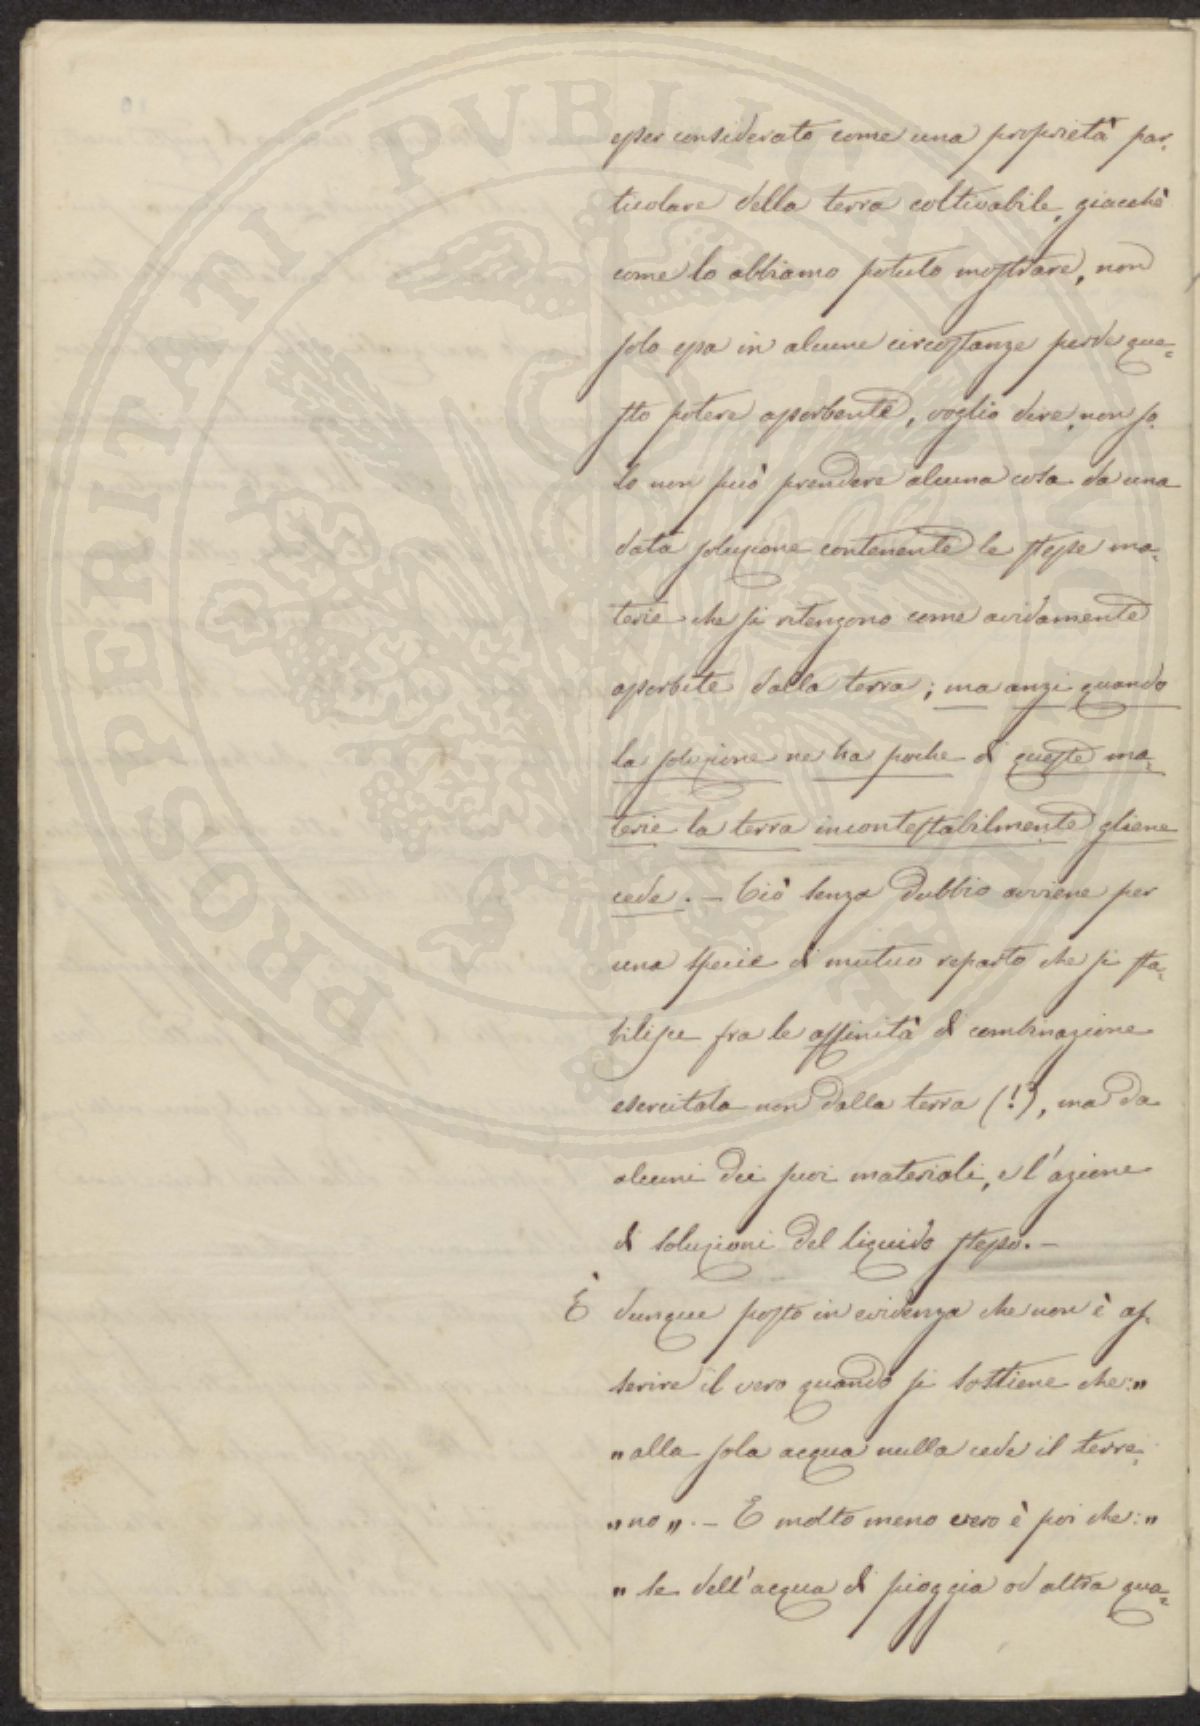 PROSPERITATI PVBLICAE
esser considerato come una proprietà par-
ticolare della terra coltivabile, giacchè
come lo abbiamo potuto mostrare, non
solo essa in alcune circostanze perde que-
sto potere assorbente, voglio dire, non so-
lo non può prendere alcuna cosa da una
data soluzione contenente le stesse ma-
terie che si ritengono come avidamente
assorbite dalla terra; ma anzi quando
la soluzione ne ha poche di queste ma-
terie la terra incontestabilmente gliene
cede. — Ciò senza dubbio avviene per
una specie di mutuo reparto che si sta-
bilisce fra le affinità di combinazione
esercitata non dalla terra (!), ma da
alcuni dei suoi materiali, e l'azione
di soluzioni del liquido stesso. —
È dunque posto in evidenza che non è as-
serire il vero quando si sostiene che: "
" alla sola acqua nulla cede il terre-
" no ". — E molto meno vero è poi che: "
" se dell'acqua di pioggia od altra qua-